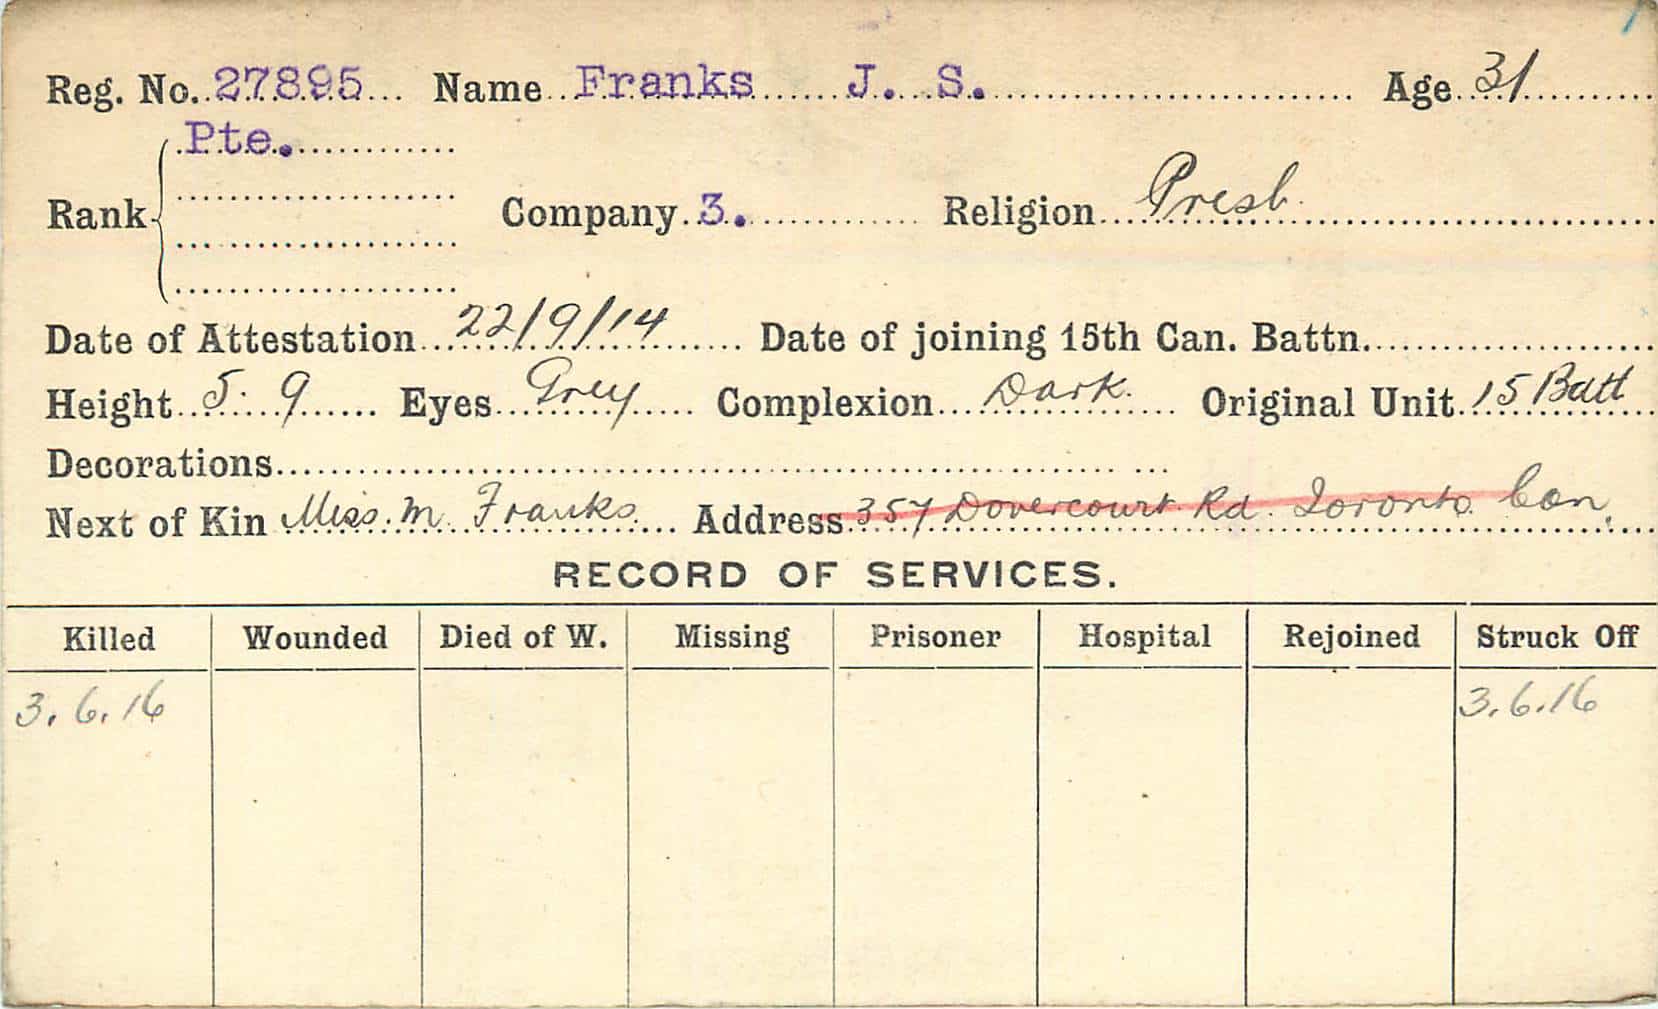 Reg. No. 27895 Name Franks J. S. Age 31
Pte.
Rank Company 3. Religion Presb.
Date of Attestation 22/9/14 Date of joining 15th Can. Battn.
Height 5. 9 Eyes Grey Complexion Dark. Original Unit 15 Batt
Decorations
Next of Kin Miss. M. Franks. Address 357 Dovercourt Rd. Toronto. Can.
RECORD OF SERVICES.
Killed Wounded Died of W. Missing Prisoner Hospital Rejoined Struck Off
3.6.16 3.6.16